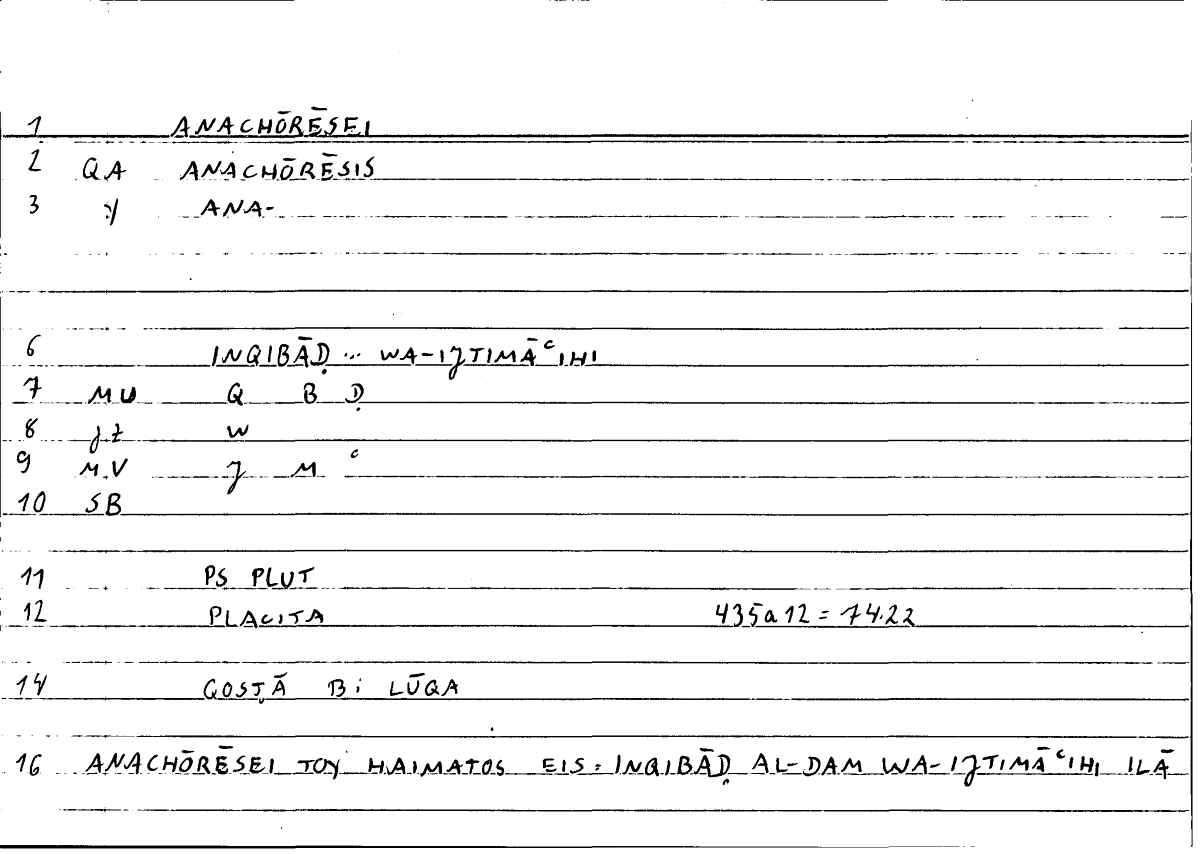 1 ANACHŌRĒSEI
2 QA ANACHŌRĒSIS
3 :y ANA-
6 INQIBĀḌ ... WA-IJTIMĀᶜIHI
7 MU Q B Ḍ
8 jz W
9 M.V J M ᶜ
10 SB
11 PS PLUT
12 PLACITA 435a12 = 74.22
14 QOSṬĀ B: LŪQA
16 ANACHŌRĒSEI TOY HAIMATOS EIS : INQIBĀḌ AL-DAM WA-IJTIMĀᶜIHI ILĀ